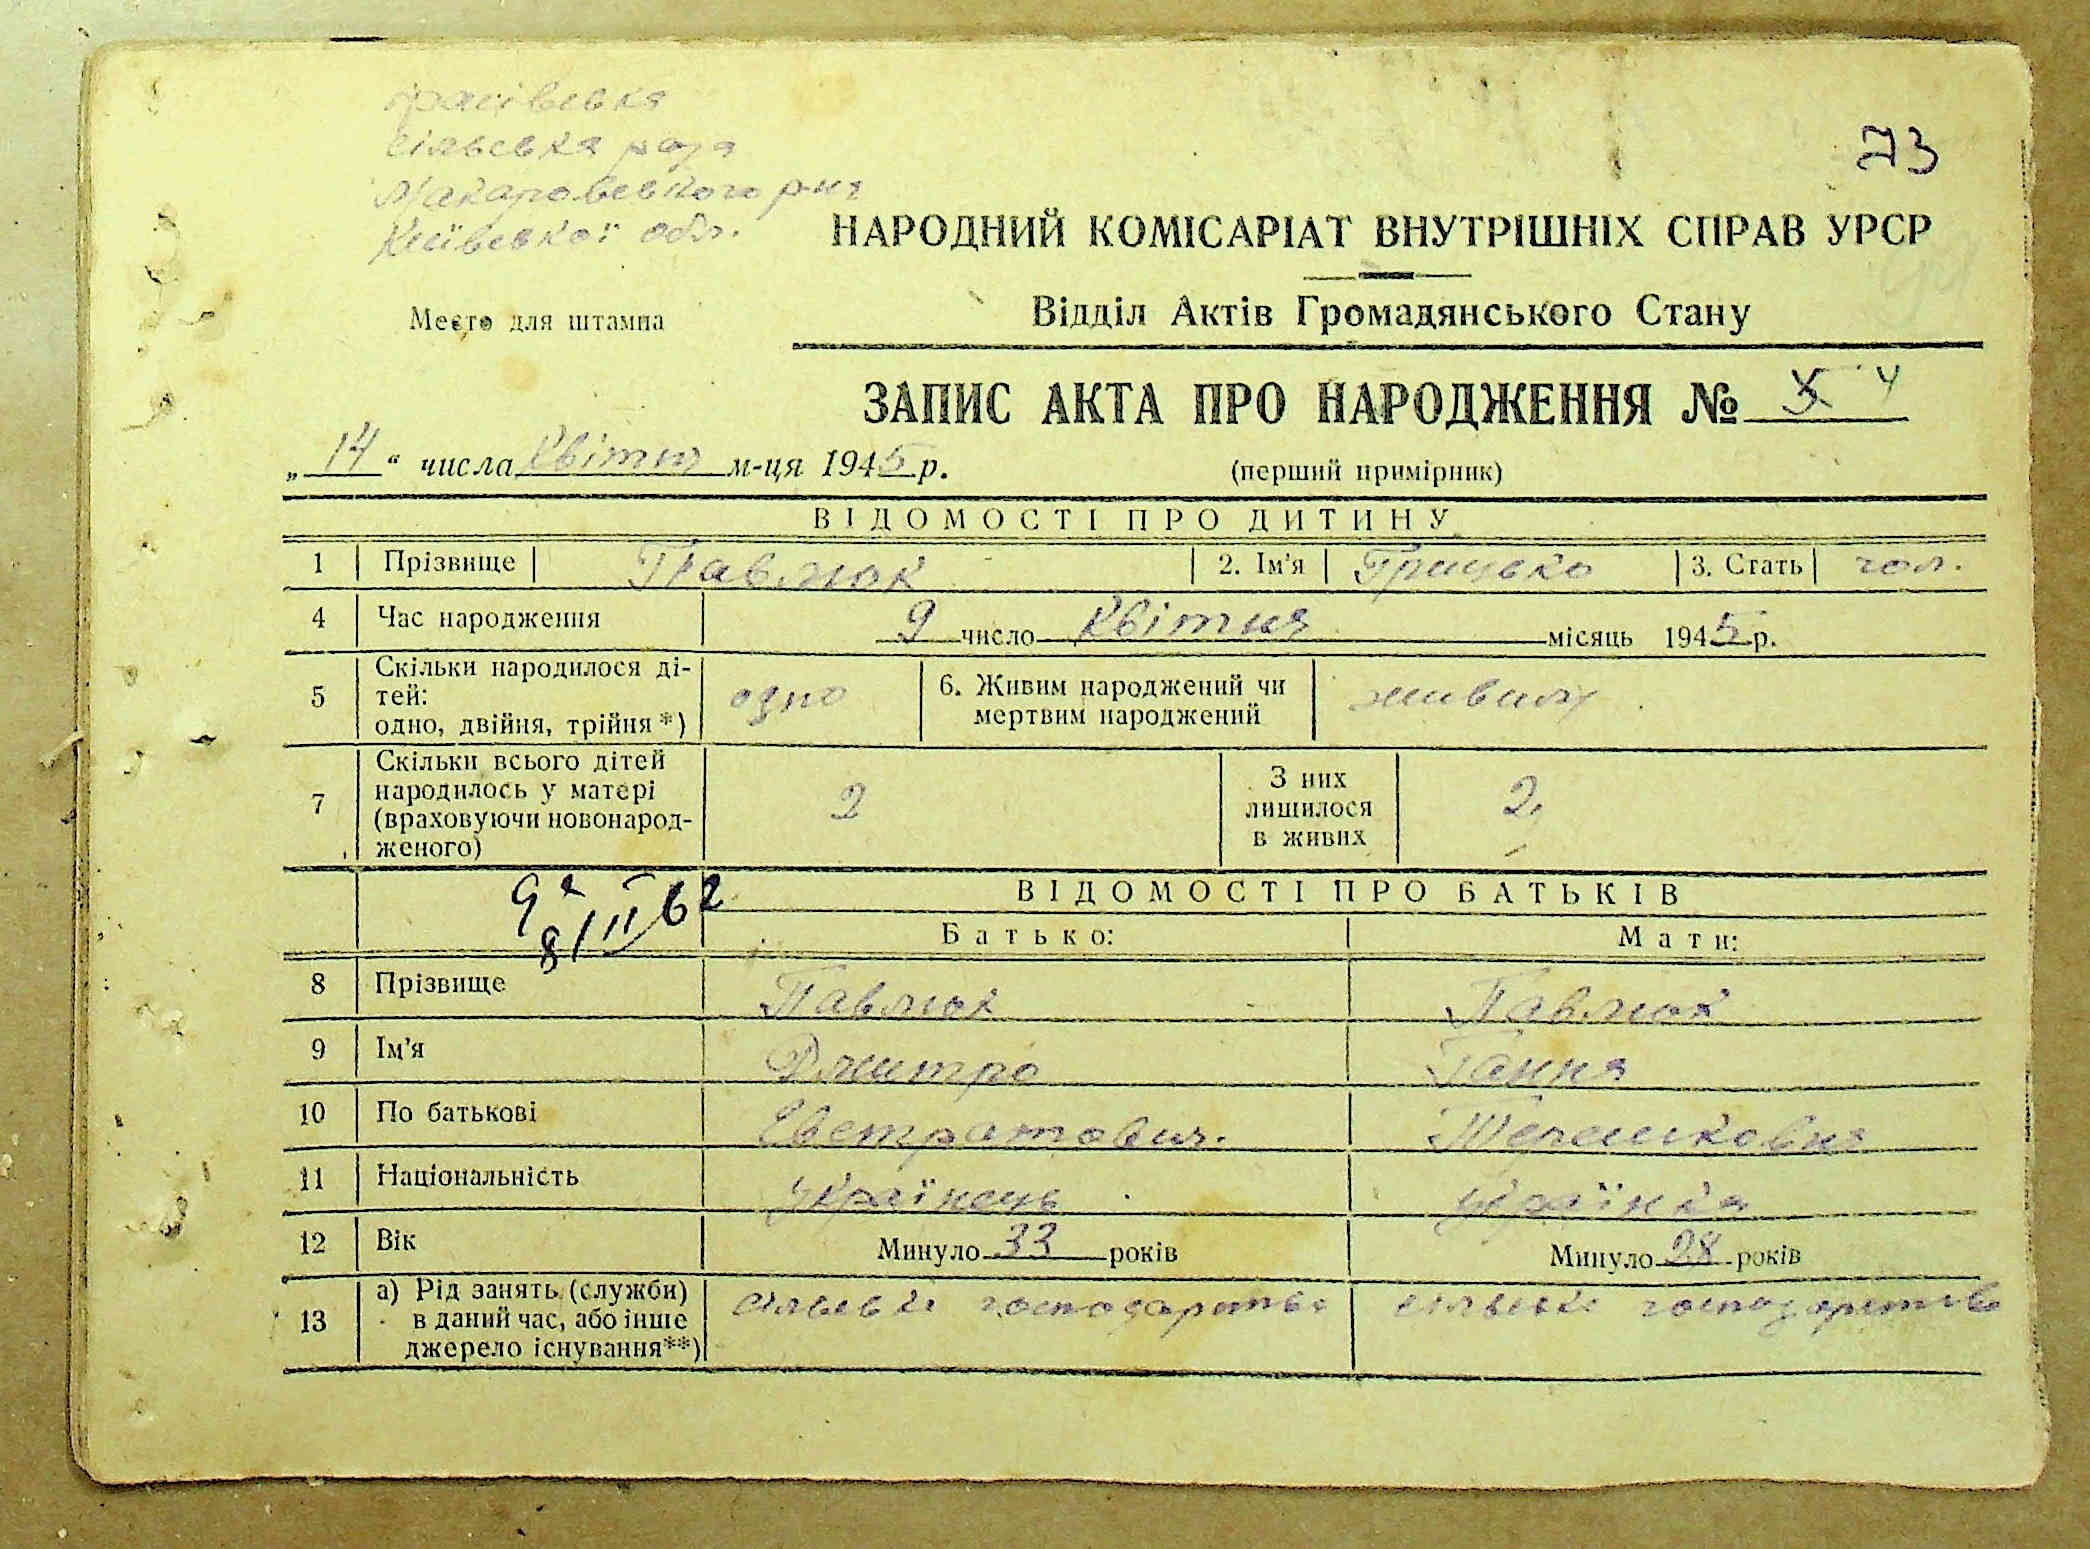 сільська рада
Макаровського р-на
Київської обл.
73
НАРОДНИЙ КОМІСАРІАТ ВНУТРІШНІХ СПРАВ УРСР
Место для штампа
Відділ Актів Громадянського Стану
ЗАПИС АКТА ПРО НАРОДЖЕННЯ № 4
„14“ числа Квітня м-ця 1945 р.
(перший примірник)
ВІДОМОСТІ ПРО ДИТИНУ
1 Прізвище Павлюк 2. Ім'я Грицько 3. Стать чол.
4 Час народження 9 число Квітня місяць 1945 р.
5 Скільки народилося ді-
тей:
одно, двійня, трійня*) одно 6. Живим народжений чи
мертвим народжений живим
7 Скільки всього дітей
народилось у матері
(враховуючи новонарод-
женого) 2 З них
лишилося
в живих 2
8/II 62
ВІДОМОСТІ ПРО БАТЬКІВ
Батько: Мати:
8 Прізвище Павлюк Павлюк
9 Ім'я Дмитро Ганна
10 По батькові Евстратович. Терешковна
11 Національність українець українка
12 Вік Минуло 33 років Минуло 28 років
13 а) Рід занять (служби)
в даний час, або інше
джерело існування**) сільське господарство сільське господарство